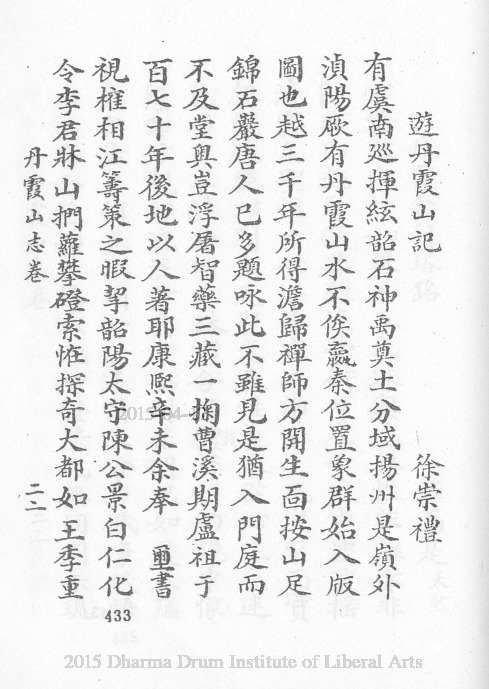 遊丹霞山記 徐崇禮
有虞南廵揮絃韶石神禹奠土分域揚州是嶺外
湞陽厥有丹霞山水不俟嬴秦位置象群始入版
圖也越三千年所得澹歸禪師方開生面按山足
錦石巖唐人已多題咏此不雖見是猶入門庭而
不及堂奥豈浮屠智藥三藏一掬曹溪期盧祖于
百七十年後地以人著耶康熙辛未余奉 璽書
視榷相江籌策之暇挈韶陽太守陳公景白仁化
令李君牀山捫蘿攀磴索恠探奇大都如王季重
丹霞山志卷 二二
433
2015 Dharma Drum Institute of Liberal Arts